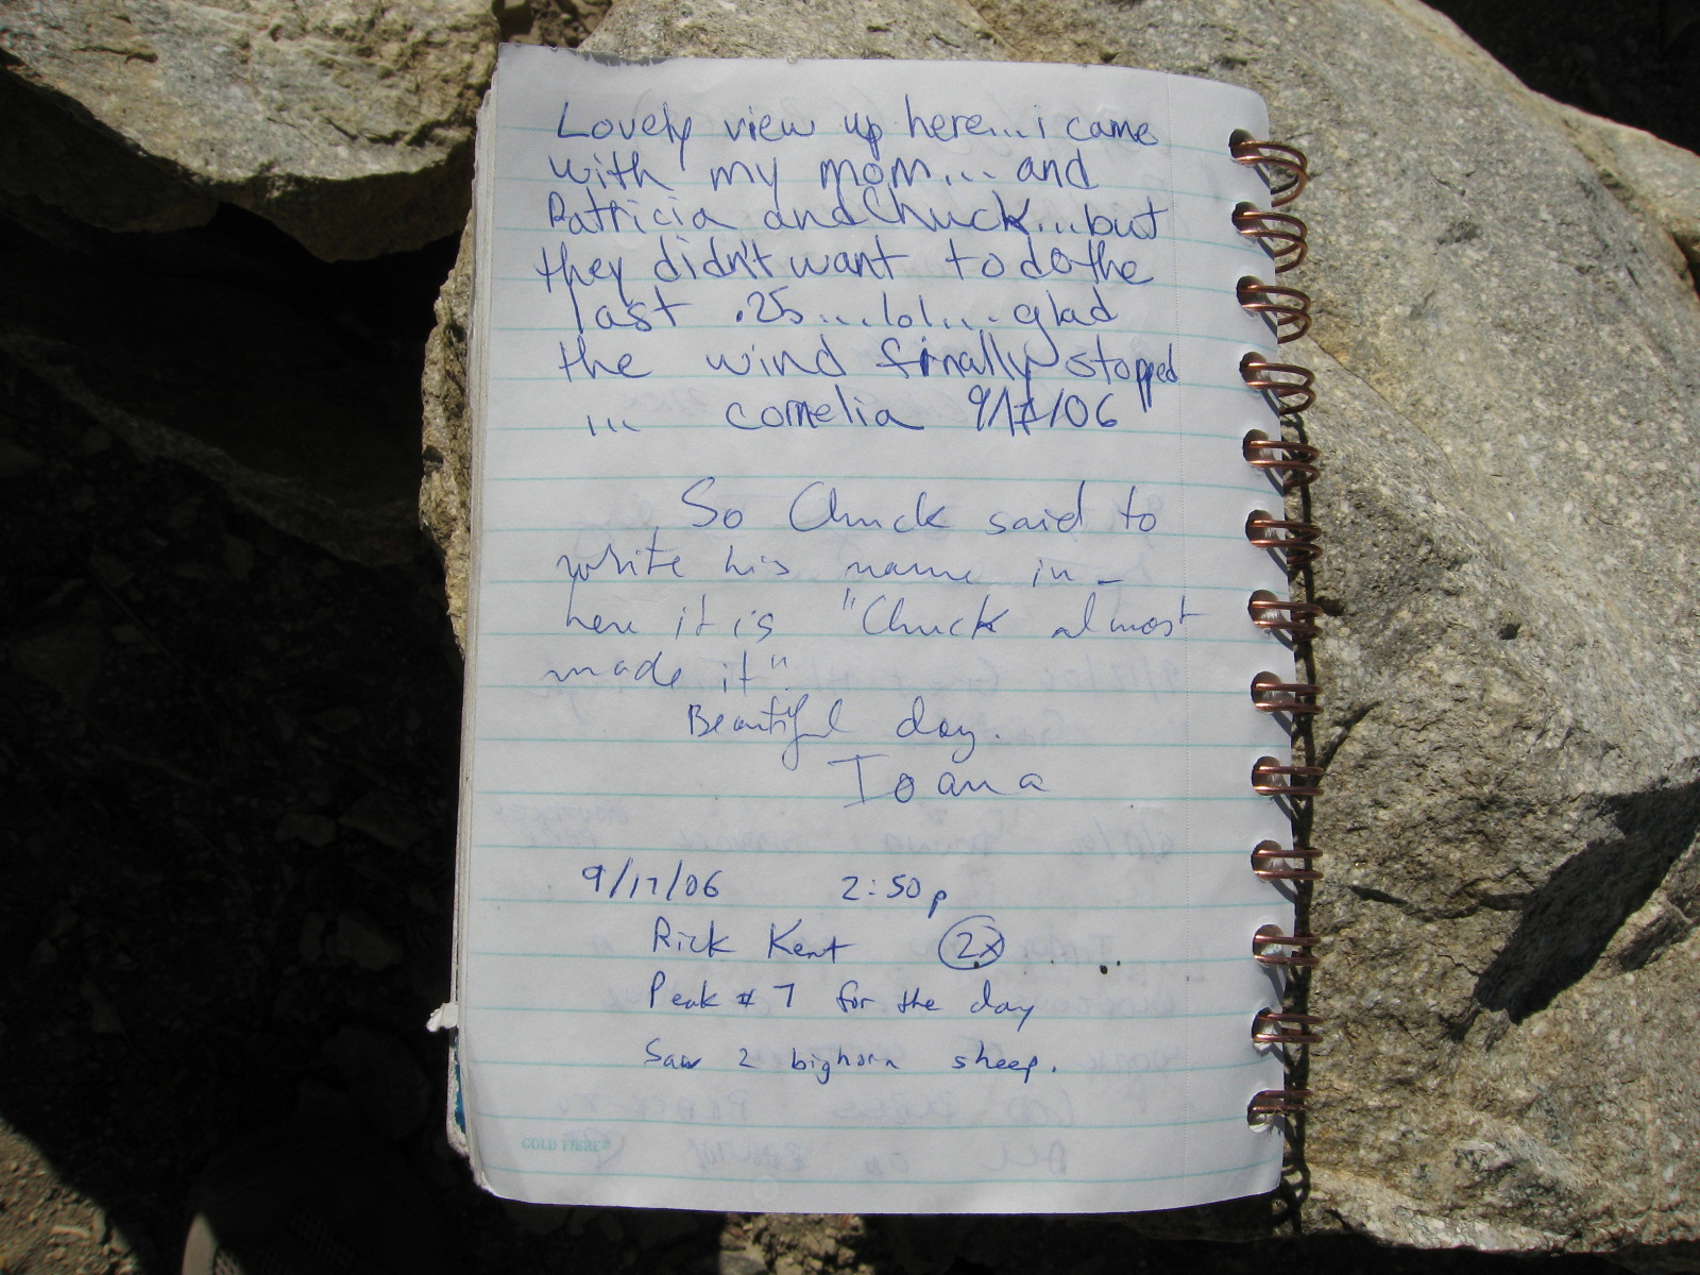 Lovely view up here... i came
with my mom... and
Patricia and Chuck... but
they didn't want to do the
last .25...lol... glad
the wind finally stopped
... cornelia 9/17/06
So Chuck said to
write his name in -
here it is "Chuck almost
made it"
Beautiful day.
Ioana
9/17/06 2:50p
Rick Kent 2x
Peak #7 for the day
Saw 2 bighorn sheep.
GOLD FIBRE®